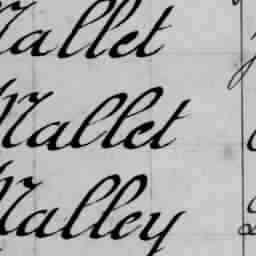 Mallet
Mallet
Malley